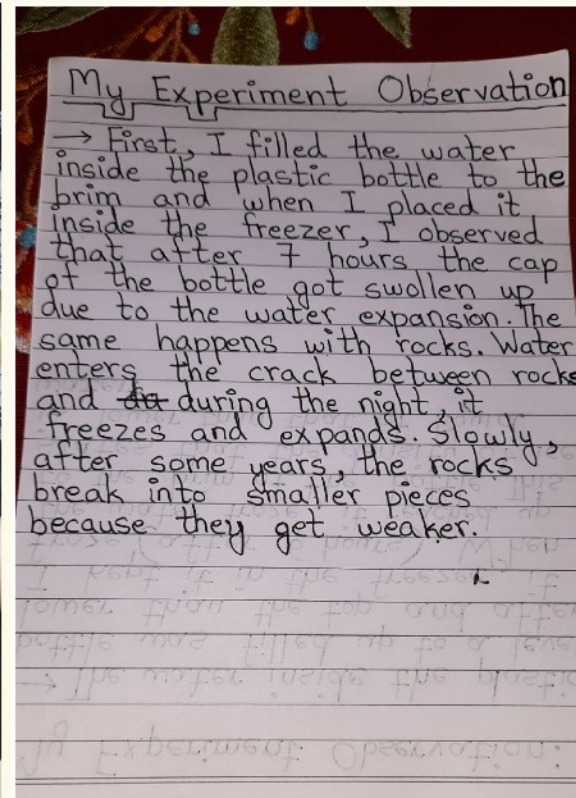 My Experiment Observation
→ First, I filled the water
inside the plastic bottle to the
brim and when I placed it
inside the freezer, I observed
that after 7 hours the cap
of the bottle got swollen up
due to the water expansion. The
same happens with rocks. Water
enters the crack between rocks
and during the night, it
freezes and expands. Slowly,
after some years, the rocks
break into smaller pieces
because they get weaker.